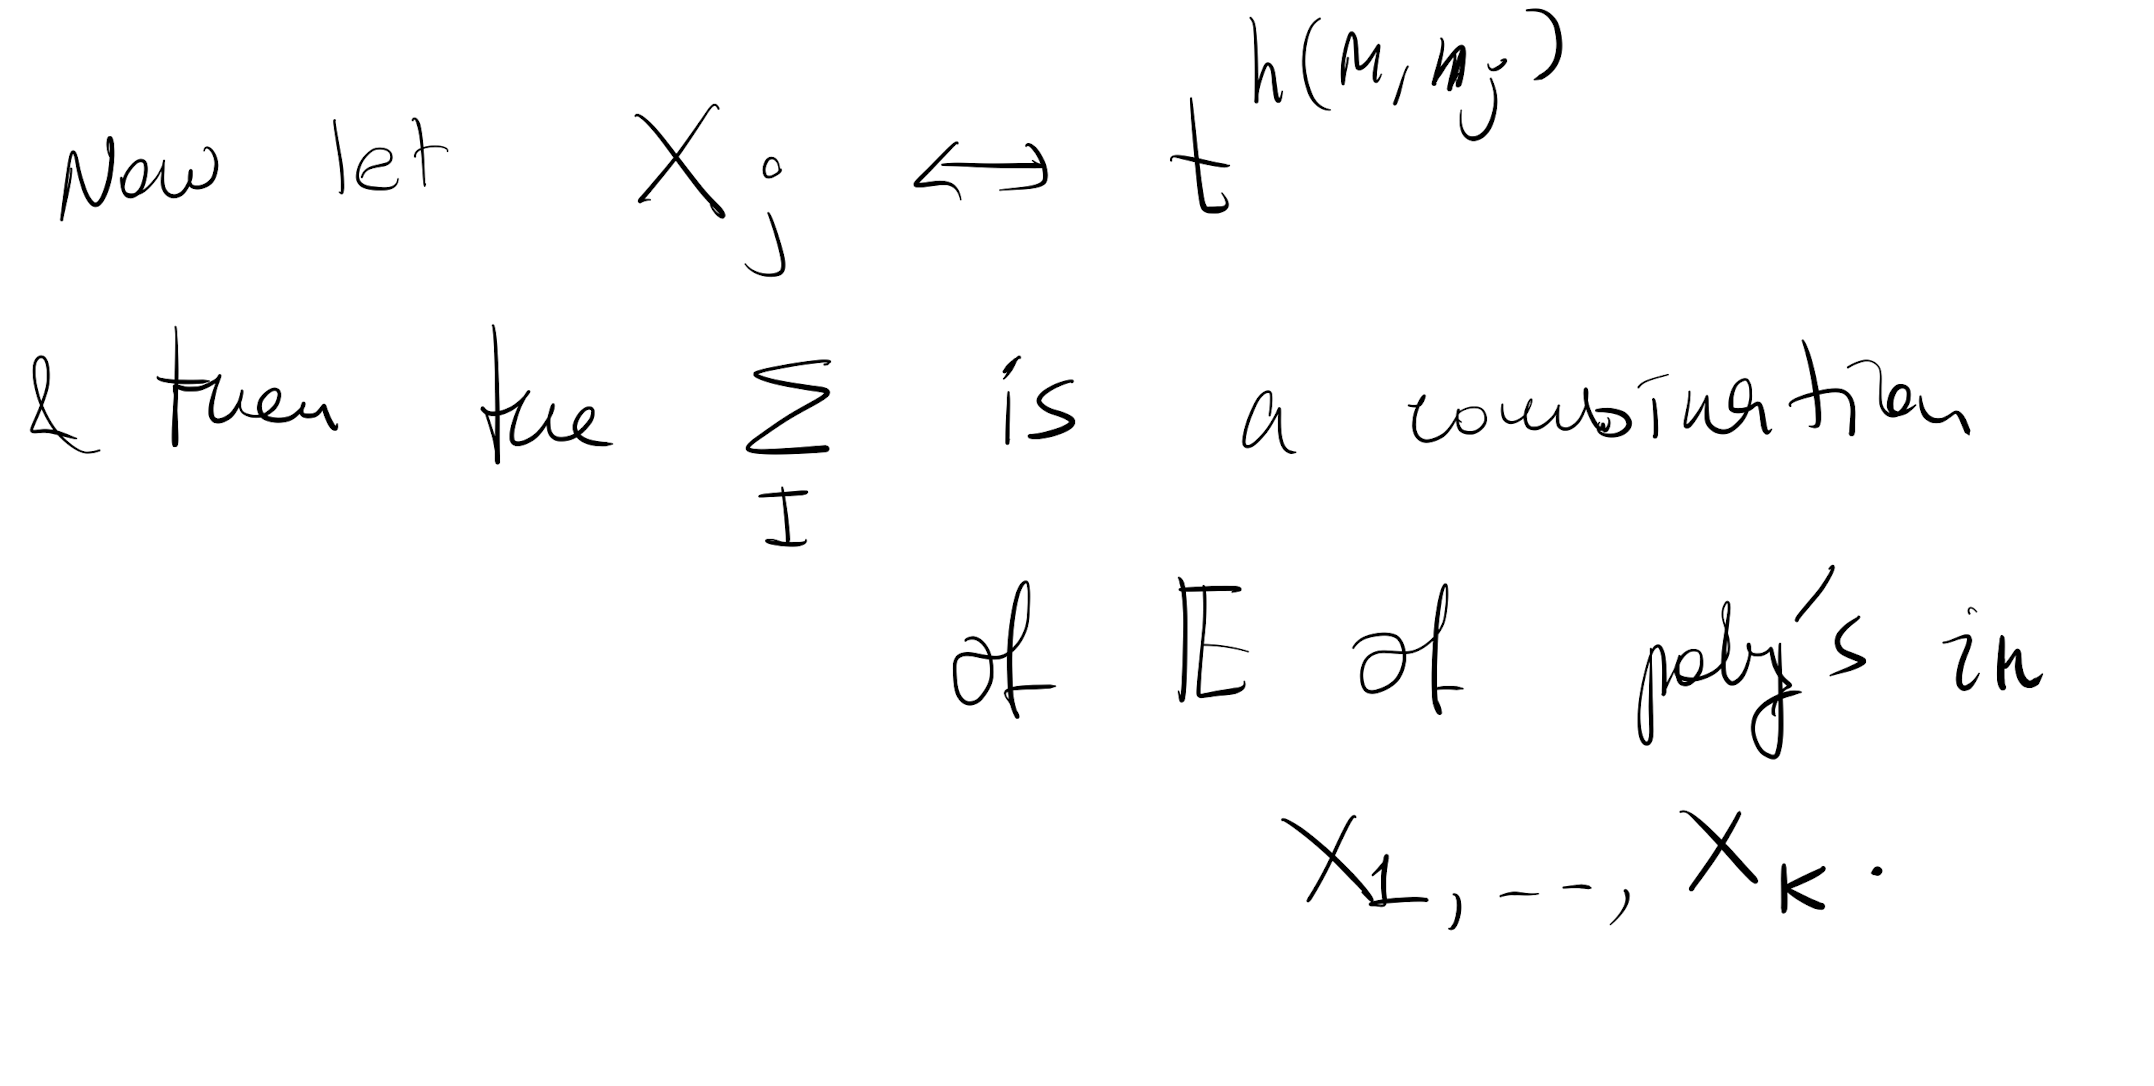 Now let X_j ↔ t^{h(M, m_j)}
& then the Σ_I is a combination
of 𝔼 of poly's in
X_1, ---, X_K.